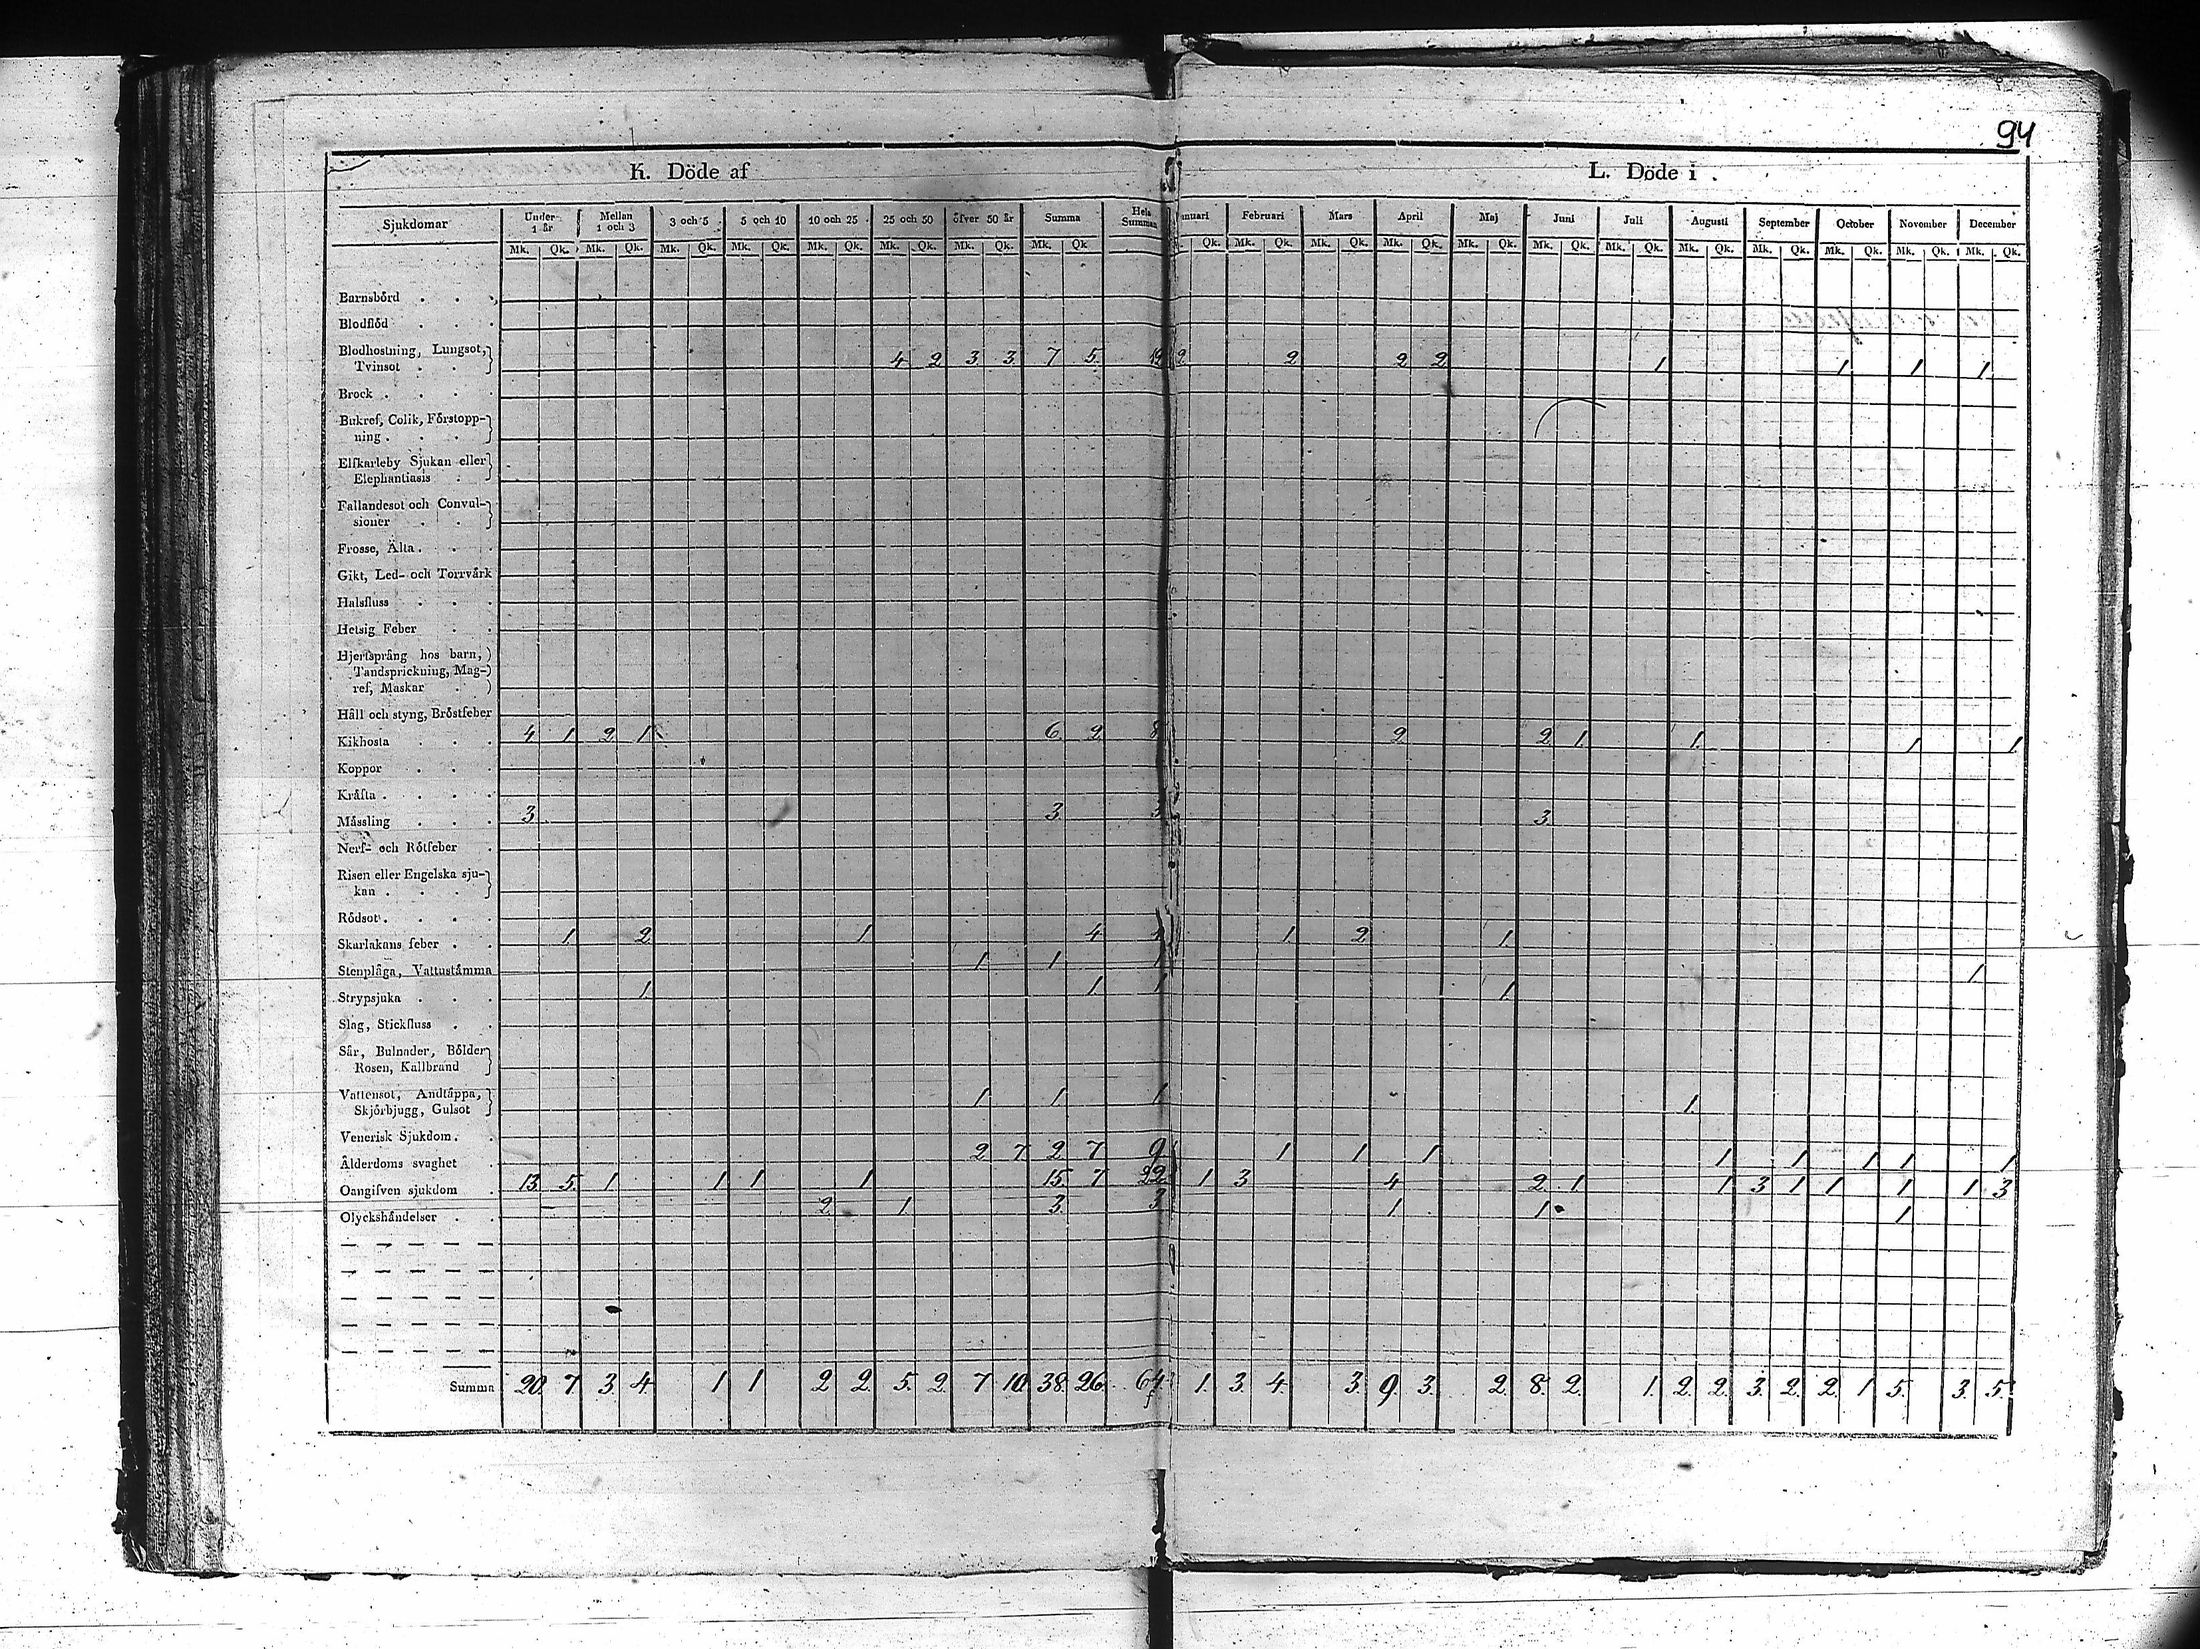 94
K. Döde af
L. Döde i
Sjukdomar Under 1 år Mellan 1 och 3 3 och 5 5 och 10 10 och 25 25 och 50 öfver 50 år Summa Hela Summan
Januari Februari Mars April Maj Juni Juli Augusti September October November December
Mk. Qk. Mk. Qk. Mk. Qk. Mk. Qk. Mk. Qk. Mk. Qk. Mk. Qk. Mk. Qk
Qk. Mk. Qk. Mk. Qk. Mk. Qk. Mk. Qk. Mk. Qk. Mk. Qk. Mk. Qk. Mk. Qk. Mk. Qk. Mk. Qk. Mk. Qk.
Barnsbörd . . .
Blodflöd . . .
Blodhostning, Lungsot,
Tvinsot . . 4 2 3 3 7 5 12 2 2 2 2 1 1 1 1
Brock . . . .
Bukref, Colik, Förstopp-
ning . . .
Elfkarleby Sjukan eller
Elephantiasis .
Fallandesot och Convul-
sioner . .
Frosse, Älta . . .
Gikt, Led- och Torrvärk
Halsfluss . . .
Hetsig Feber . .
Hjertsprång hos barn,
Tandsprickning, Mag-
ref, Maskar .
Håll och styng, Bröstfeber
Kikhosta . . . 4 1 2 1 6 2 8 2 2 1 1 1 1
Koppor . . .
Kräfta . . . .
Mässling . . . 3 3 3 3
Nerf- och Rötfeber .
Risen eller Engelska sju-
kan . . .
Rödsot . . . .
Skarlakans feber . . 1 2 1 4 4 1 2 1
Stenplåga, Vattustämma 1 1 1 1
Strypsjuka . . . 1 1 1 1
Slag, Stickfluss . .
Sår, Bulnader, Bölder
Rosen, Kallbrand
Vattensot, Andtäppa,
Skjörbjugg, Gulsot 1 1 1 1
Venerisk Sjukdom . .
Ålderdoms svaghet . 2 7 2 7 9 1 1 1 1 1 1 1 1
Oangifven sjukdom . 13 5 1 1 1 1 15 7 22 1 3 4 2 1 1 3 1 1 1 1 3
Olyckshändelser . . 2 1 3 3 1 1 1
Summa 20 7 3 4 1 1 2 2 5 2 7 10 38 26 64 1 3 4 3 9 3 2 8 2 1 2 2 3 2 2 1 5 3 5